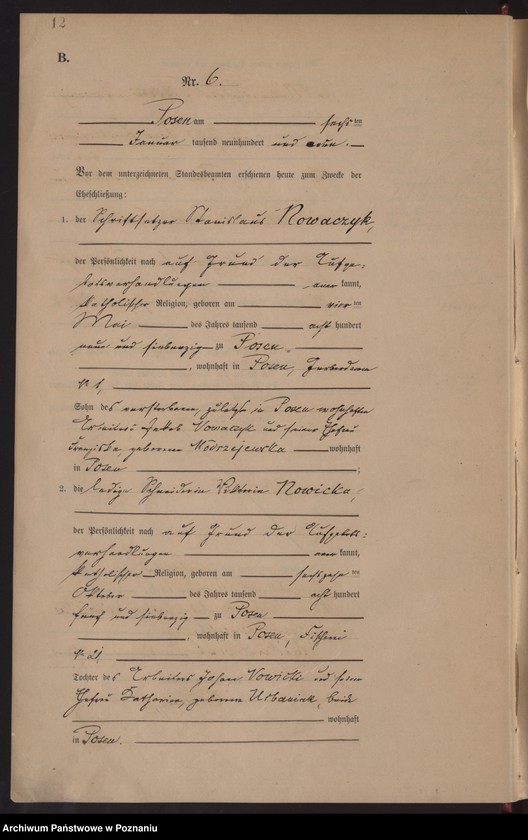 12
B.
Nr. 6.
Posen am sechsten
Januar tausend neunhundert und neun.
Vor dem unterzeichneten Standesbeamten erschienen heute zum Zwecke der
Eheschließung:
1. der Schriftsetzer Stanislaus Nowaczyk,
der Persönlichkeit nach auf Grund der Aufge-
botsverhandlungen anerkannt,
katholischer Religion, geboren am vierten
Mai des Jahres tausend achthundert
neun und siebenzig zu Posen
, wohnhaft in Posen,
№ 1,
Sohn des verstorbenen, zuletzt in Posen wohnhaften
Arbeiters Jakob Nowaczyk und seiner Ehefrau
Franziska, geborenen Modrzejewska wohnhaft
in Posen ;
2. die ledige Schneiderin Viktoria Nowicka,
der Persönlichkeit nach auf Grund der Aufgebots-
verhandlungen anerkannt,
katholischer Religion, geboren am sechszehnten
Oktober des Jahres tausend achthundert
fünf und siebenzig zu Posen
, wohnhaft in Posen, Fischerei
№ 21,
Tochter des Arbeiters Johann Nowicki und seiner
Ehefrau Katharina, geborenen Urbaniak, beide
wohnhaft
in Posen.
Archiwum Państwowe w Poznaniu